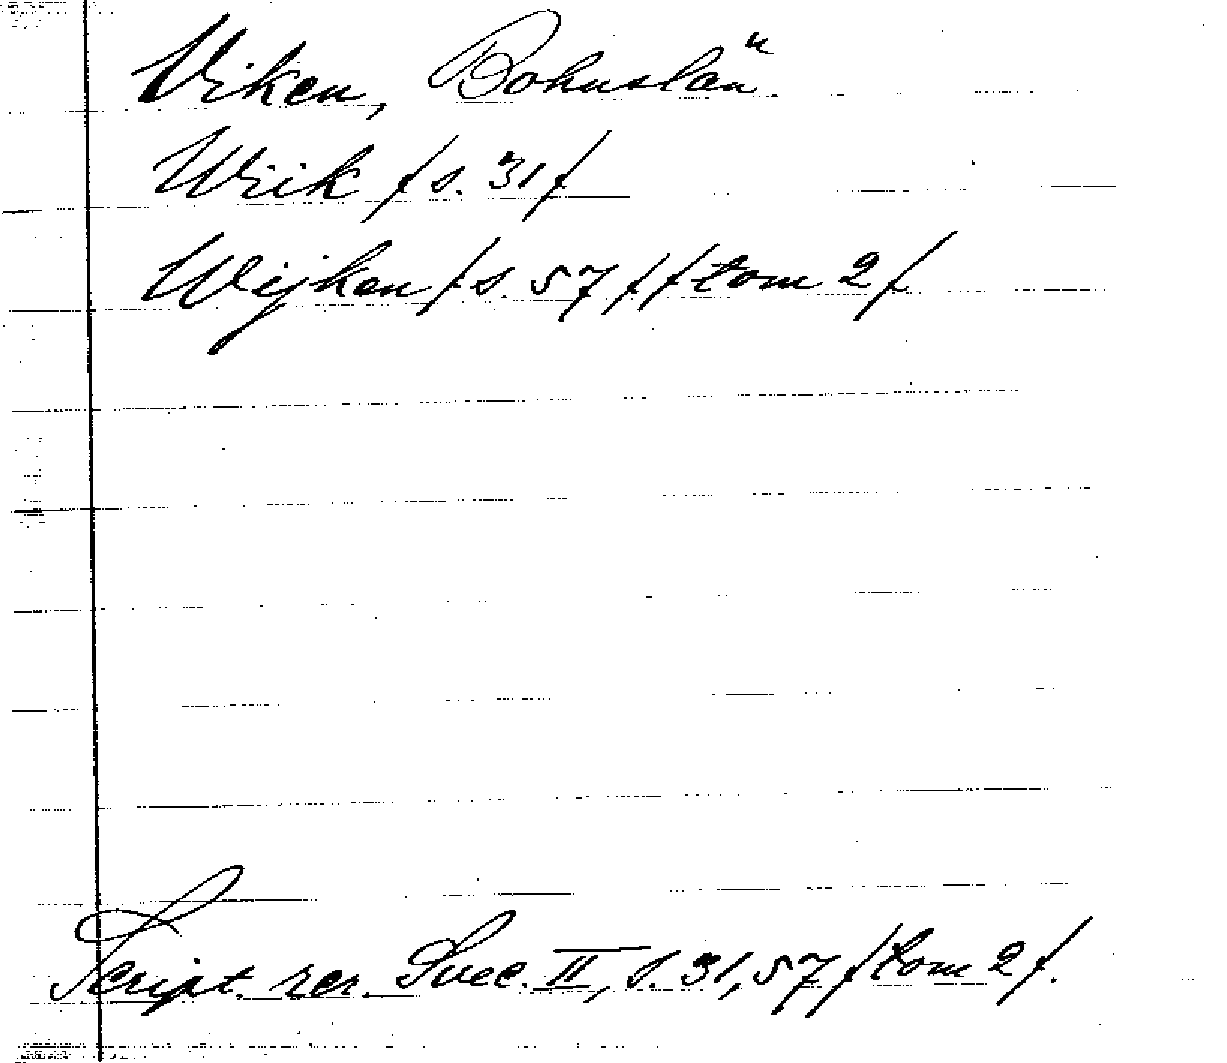 Viken, Bohuslän.
Wiik /s. 31/
Wijken /s. 57/ /tom 2/
Script. rer. Suec. II, s. 31, 57 /tom 2/.